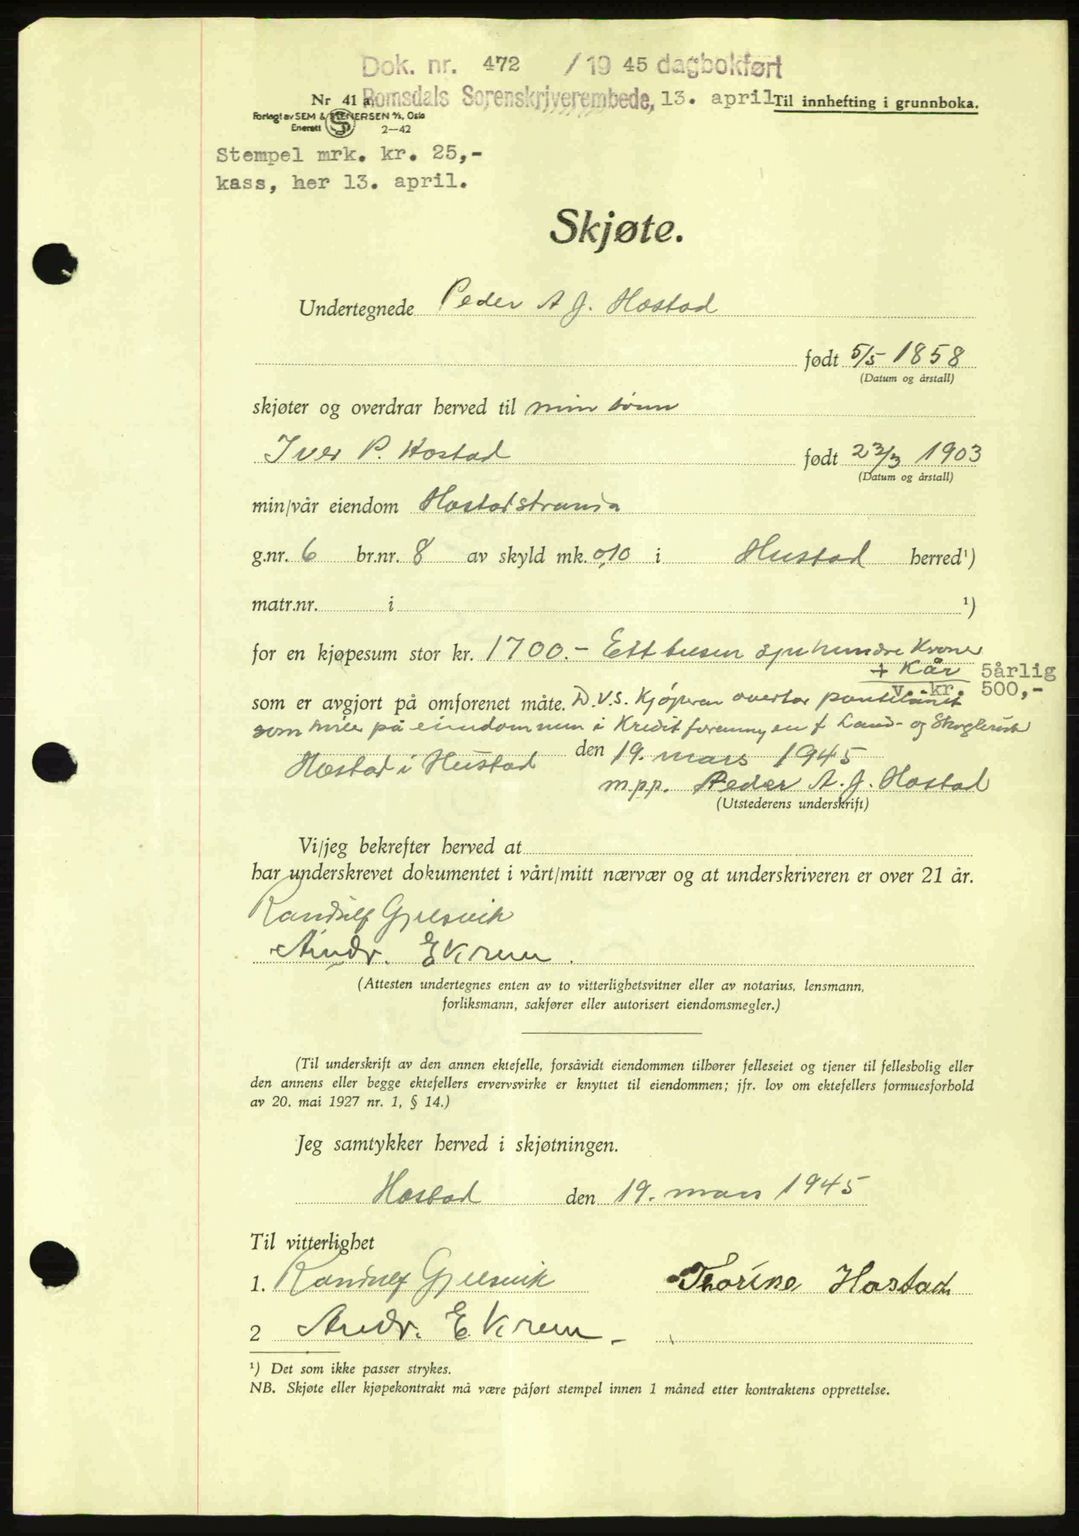 Dok. nr. 472 / 1945 dagbokført
Nr 41 a. Romsdals Sorenskriverembede, 13. april Til innhefting i grunnboka.
Forlagt av SEM & STENERSEN A/S, Oslo
Enerett 2—42
Stempel mrk. kr. 25,-
kass, her 13. april.
Skjøte.
Undertegnede Peder A J. Hostad
født 5/5 1858
(Datum og årstall)
skjøter og overdrar herved til min sønn
Iver P. Hostad født 23/3 1903
(Datum og årstall)
min/vår eiendom Hostadstranda
g.nr. 6 br.nr. 8 av skyld mk. 0,10 i Hustad herred¹)
matr.nr. i ¹)
for en kjøpesum stor kr. 1700.- Ett tusen syv hundre Kroner
+ Kår 5årlig
v. kr. 500,-
som er avgjort på omforenet måte. D.V.S. Kjøperen overtar pantelånet
som hviler på eiendommen i Kreditforeningen f Land- og Skogbruk
Hostad i Hustad den 19. mars 1945
m.p.p. Peder A. J. Hostad
(Utstederens underskrift)
Vi/jeg bekrefter herved at
har underskrevet dokumentet i vårt/mitt nærvær og at underskriveren er over 21 år.
Randulf Gjelsvik
Andr. E Krem
(Attesten undertegnes enten av to vitterlighetsvitner eller av notarius, lensmann,
forliksmann, sakfører eller autorisert eiendomsmegler.)
(Til underskrift av den annen ektefelle, forsåvidt eiendommen tilhører felleseiet og tjener til fellesbolig eller
den annens eller begge ektefellers ervervsvirke er knyttet til eiendommen; jfr. lov om ektefellers formuesforhold
av 20. mai 1927 nr. 1, § 14.)
Jeg samtykker herved i skjøtningen.
Hostad den 19. mars 1945
Til vitterlighet
1. Randulf Gjelsvik Thorine Hostad
2 Andr. E. Krem
¹) Det som ikke passer strykes.
NB. Skjøte eller kjøpekontrakt må være påført stempel innen 1 måned etter kontraktens opprettelse.